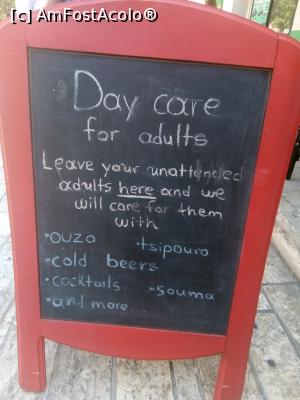 [c] AmFostAcolo®
Day care
for adults
Leave your unattended
adults here and we
will care for them
with
•ouzo •tsipouro
•cold beers
•cocktails •souma
•and more...